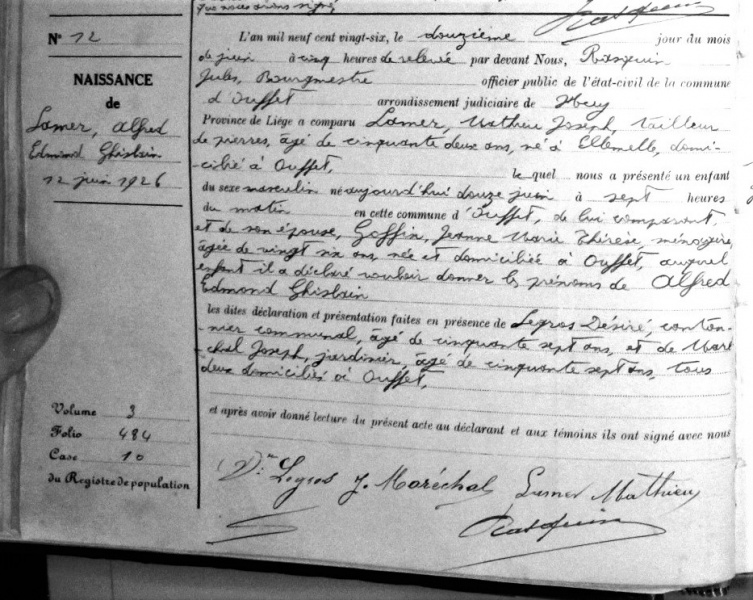 que nous avons signé
N° 12
NAISSANCE
de
Lamer, Alfred
Edmond Ghislain
12 juin 1926
Volume 3
Folio 484
Case 10
du Registre de population
L'an mil neuf cent vingt-six, le douzième jour du mois
de juin à cinq heures de relevée par devant Nous, Rasquin
Jules, Bourgmestre officier public de l'état-civil de la commune
d'Ouffet arrondissement judiciaire de Huy
Province de Liège a comparu Lamer, Mathieu Joseph, tailleur
de pierres, âgé de cinquante deux ans, né à Ellemelle, domi-
cilié à Ouffet, le quel nous a présenté un enfant
du sexe masculin né aujourd'hui douze juin à sept heures
du matin en cette commune d'Ouffet, de lui comparant,
et de son épouse, Goffin, Jeanne Marie Thérèse, ménagère,
âgée de vingt six ans, née et domiciliée à Ouffet, auquel
enfant il a déclaré vouloir donner les prénoms de Alfred
Edmond Ghislain
les dites déclaration et présentation faites en présence de Legros Désiré, canton-
nier communal, âgé de cinquante sept ans, et de Maré-
chal Joseph, jardinier, âgé de cinquante sept ans, tous
deux domiciliés à Ouffet,
et après avoir donné lecture du présent acte au déclarant et aux témoins ils ont signé avec nous
Legros J. Maréchal Lamer Mathieu
Rasquin